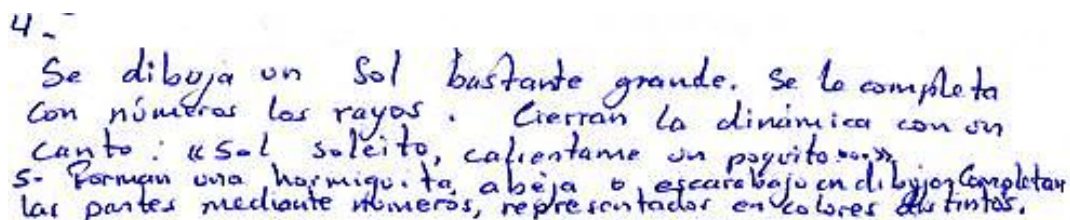 4-
Se dibuja un Sol bastante grande. Se lo completa
con números los rayos. Cierran la dinámica con un
canto: «Sol solcito, calientame un poquito...»
5- Forman una hormiguita, abeja o escarabajo en dibujos Completan
las partes mediante números, representados en colores distintos.